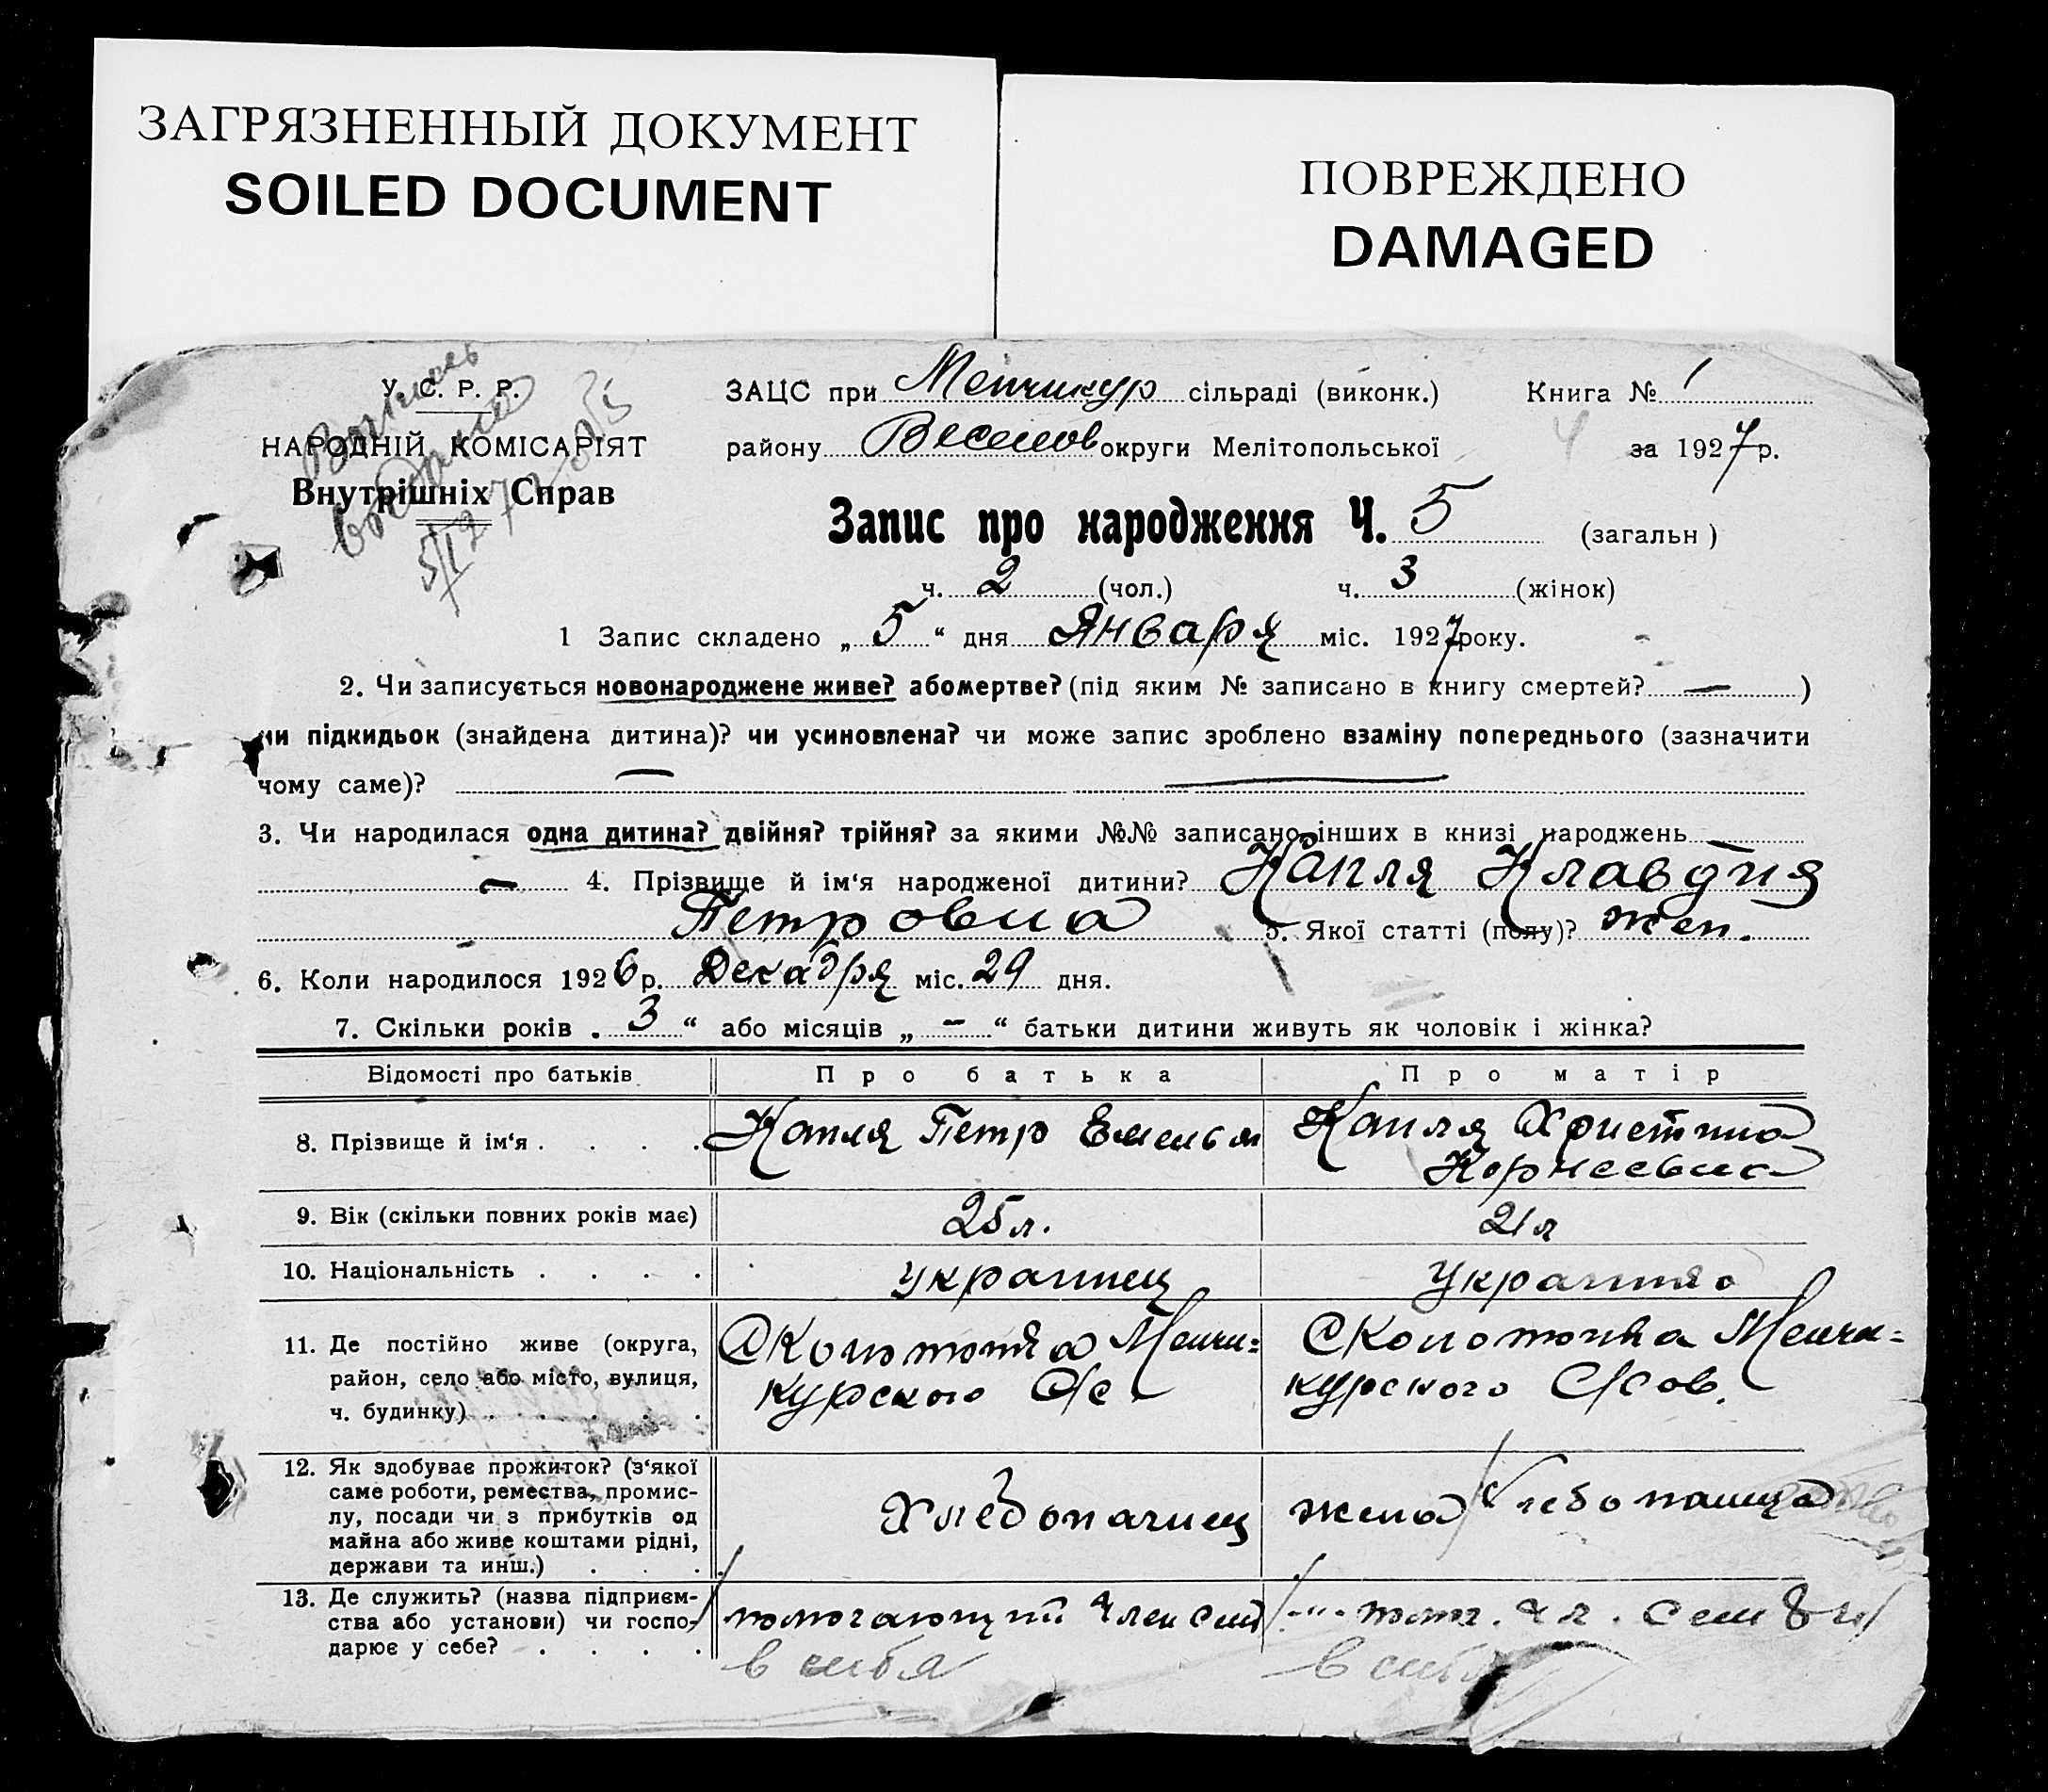 ЗАГРЯЗНЕННЫЙ ДОКУМЕНТ
SOILED DOCUMENT
ПОВРЕЖДЕНО
DAMAGED
У. С. Р. Р.
НАРОДНІЙ КОМІСАРІЯТ
Внутрішніх Справ
Выпись
выдана
ЗАЦС при Менчикур сільраді (виконк.) Книга № 1
району Веселов округи Мелітопольської 4 за 1927 р.
Запис про народження Ч. 5 (загальн)
ч. 2 (чол.) ч. 3 (жінок)
1 Запис складено „ 5 “ дня Января міс. 1927 року.
2. Чи записується новонароджене живе? або мертве? (під яким № записано в книгу смертей? — )
чи підкидьок (знайдена дитина)? чи усиновлена? чи може запис зроблено взаміну попереднього (зазначити
чому саме)? — —
3. Чи народилася одна дитина? двійня? трійня? за якими №№ записано інших в книзі народжень —
— 4. Прізвище й ім‘я народженої дитини? Капля Клавдия
Петровна 5. Якої статті (полу)? жен.
6. Коли народилося 1926 р. Декабря міс. 29 дня.
7. Скільки років „ 3 “ або місяців „ - “ батьки дитини живуть як чоловік і жінка?
Відомості про батьків Про батька Про матір
8. Прізвище й ім‘я . . . . Капля Петр Емельян Капля Христина
Корнеевна
9. Вік (скільки повних років має) 25 л. 21 л
10. Національність . . . . украинец украинка
11. Де постійно живе (округа,
район, село або місто, вулиця,
ч. будинку) . . . . .
Менчи=
курского С/с
Менчи=
курского С/сов.
12. Як здобуває прожиток? (з‘якої
саме роботи, ремества, промис-
лу, посади чи з прибутків од
майна або живе коштами рідні,
держави та инш.) . . .
Хлебопашец жена хлебопашца
13. Де служить? (назва підприєм-
ства або установи) чи госпо-
дарює у себе? . . . .
помогающий член сем
в себя
-"- пом. чл. семьи
в себя